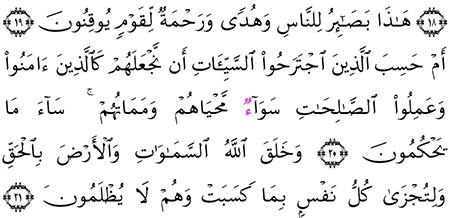 ﴿١٨﴾ هَـٰذَا بَصَـٰٓئِرُ لِلنَّاسِ وَهُدًى وَرَحْمَةٌ لِّقَوْمٍ يُوقِنُونَ ﴿١٩﴾
أَمْ حَسِبَ ٱلَّذِينَ ٱجْتَرَحُوا۟ ٱلسَّيِّـَٔاتِ أَن نَّجْعَلَهُمْ كَٱلَّذِينَ ءَامَنُوا۟
وَعَمِلُوا۟ ٱلصَّـٰلِحَـٰتِ سَوَآءٌ مَّحْيَاهُمْ وَمَمَاتُهُمْ ۚ سَآءَ مَا
يَحْكُمُونَ ﴿٢٠﴾ وَخَلَقَ ٱللَّهُ ٱلسَّمَـٰوَٰتِ وَٱلْأَرْضَ بِٱلْحَقِّ
وَلِتُجْزَىٰ كُلُّ نَفْسٍۭ بِمَا كَسَبَتْ وَهُمْ لَا يُظْلَمُونَ ﴿٢١﴾